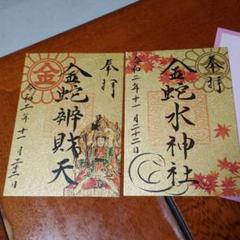 奉拝
金蛇辨財天
令和二年十一月二十二日
金
奉拝
金蛇水神社
令和二年十一月二十二日